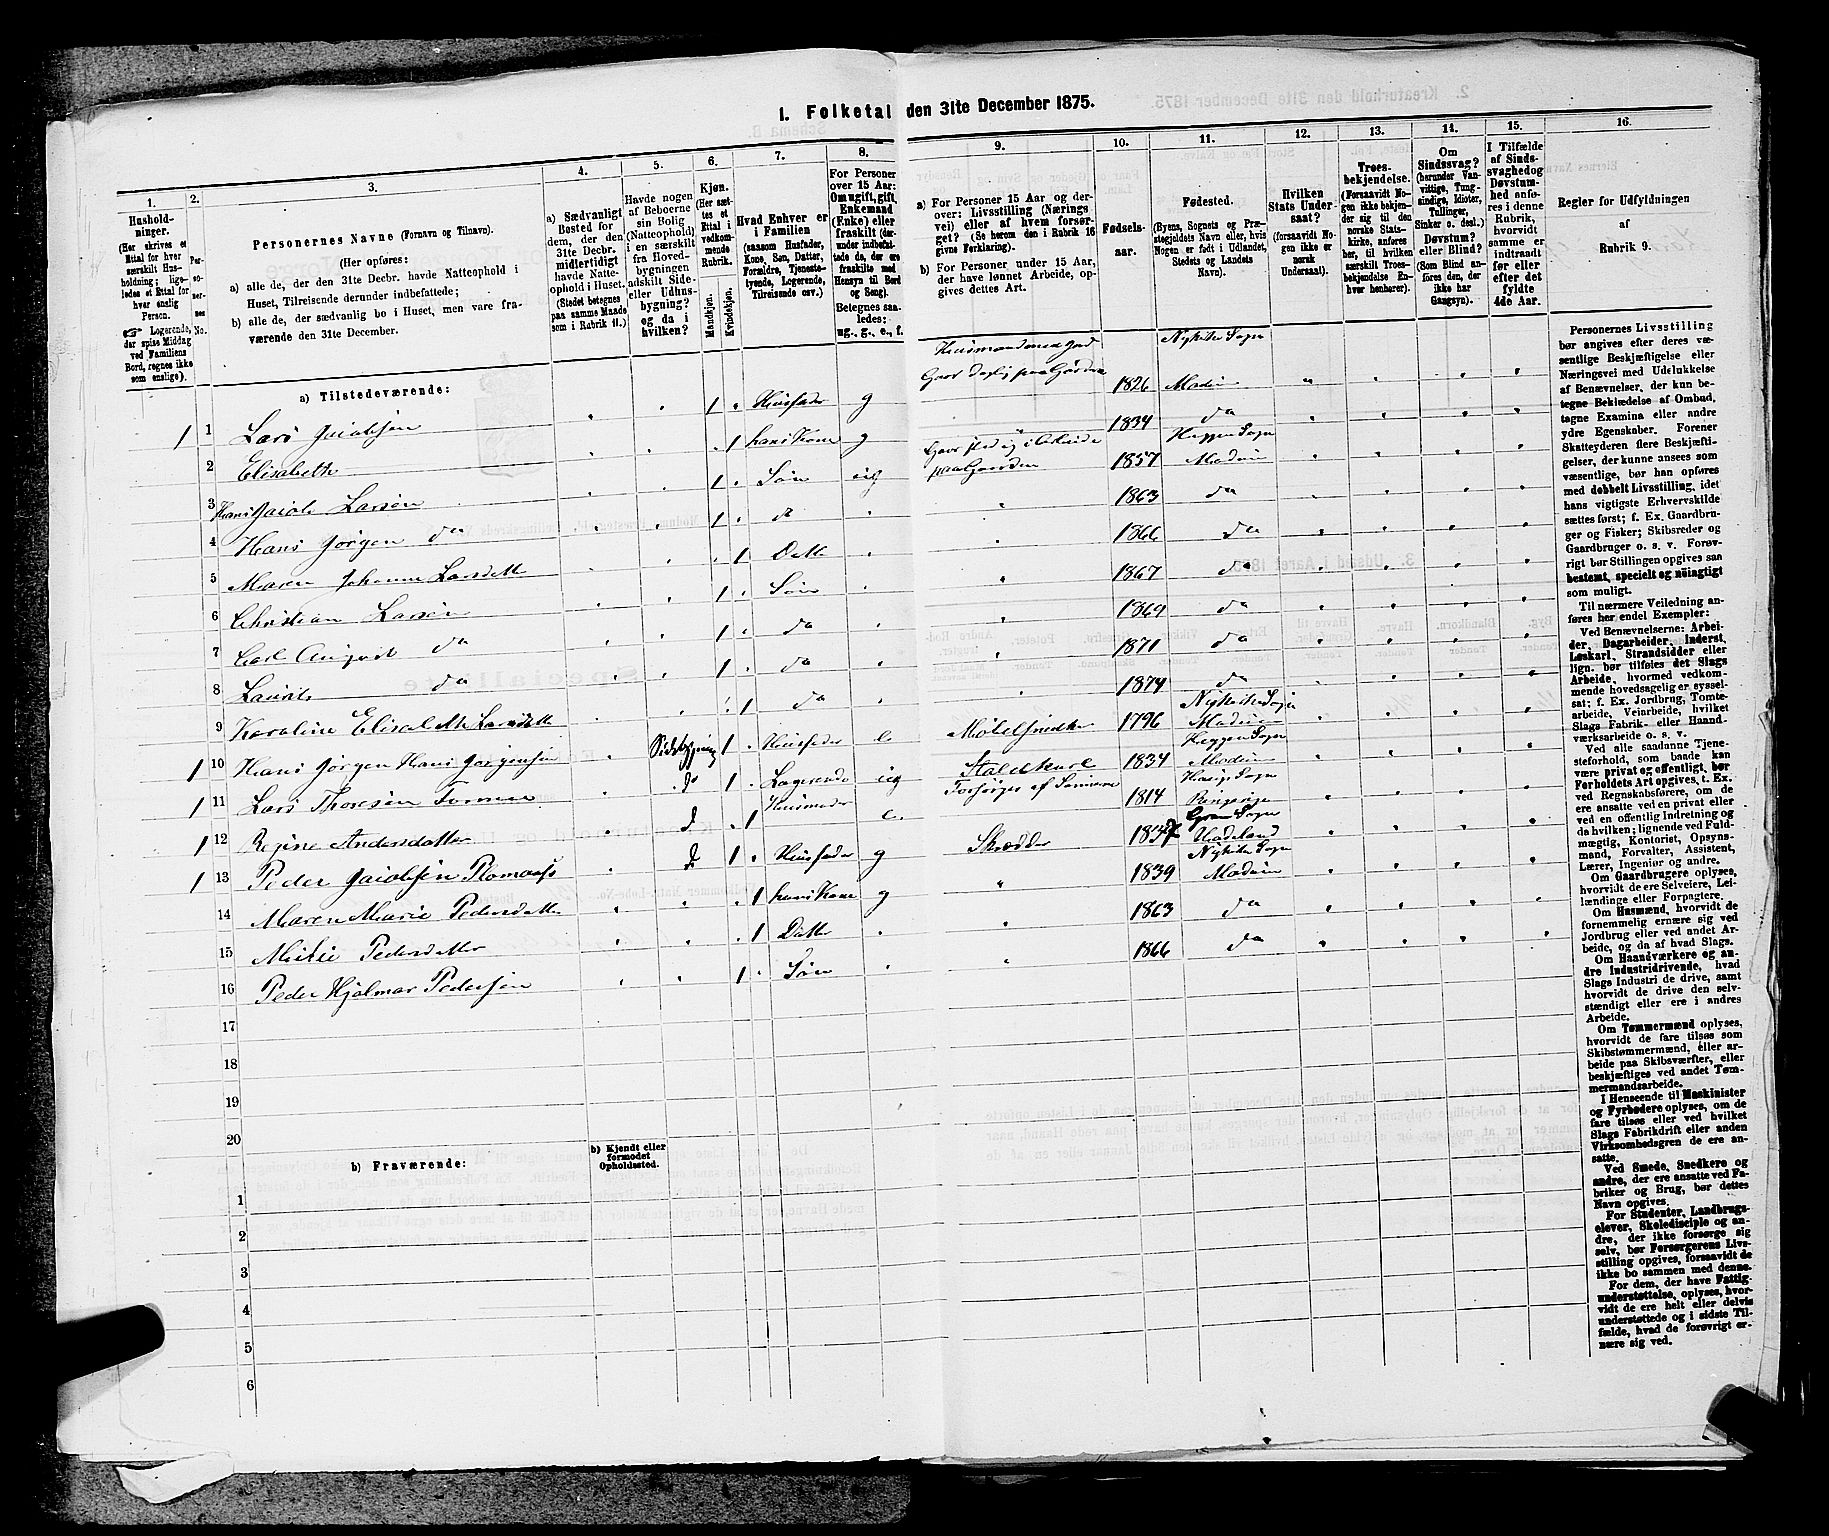 1. Folketal den 31te December 1875.
1. 2. 3. 4. 5. 6. 7. 8. 9. 10. 11. 12. 13. 14. 15. 16.
Husholdninger.
(Her skrives et Ettal for hver særskilt Husholdning; ligeledes et Ettal for hver enslig Person.
Logerende, der spise Middag ved Familiens Bord, regnes ikke som enslige).
Personernes No.
Personernes Navne (Fornavn og Tilnavn).
(Her opføres:
a) alle de, der den 31te Decbr. havde Natteophold i Huset, Tilreisende derunder indbefattede;
b) alle de, der sædvanlig bo i Huset, men vare fraværende den 31te December.
a) Sædvanligt Bosted for dem, der den 31te Decbr. midlertidigt havde Natteophold i Huset.
(Stedet betegnes paa samme Maade som i Rubrik 11.)
Havde nogen af Beboerne sin Bolig (Natteophold) i en særskilt fra Hovedbygningen adskilt Side- eller Udhusbygning? og da i hvilken?
Kjøn.
(Her sættes et Ettal i vedkommende Rubrik.
Mandkjøn.
Kvindekjøn.
Hvad Enhver er i Familien
(saasom Husfader, Kone, Søn, Datter, Forældre, Tjenestetyende, Logerende, Tilreisende osv.)
For Personer over 15 Aar: Om ugift, gift, Enkemand (Enke) eller fraskilt (derunder indbefattede de, der ere fraskilte med Hensyn til Bord og Seng).
Betegnes saaledes: ug., g., e., f.
a) For Personer 15 Aar og derover: Livsstilling (Næringsvei) eller af hvem forsørget? (Se herom den i Rubrik 16 givne Forklaring).
b) For Personer under 15 Aar, der have lønnet Arbeide, opgives dettes Art.
Fødselsaar.
Fødested.
(Byens, Sognets og Præstegjeldets Navn eller, hvis Nogen er født i Udlandet, Stedets og Landets Navn).
Hvilken Stats Undersaat?
(forsaavidt Nogen ikke er norsk Undersaat).
Troesbekjendelse.
(Forsaavidt Nogen ikke bekjender sig til den norske Statskirke, anføres her, til hvilken særskilt Troesbekjendelse Enhver henhører).
Om Sindssvag? (herunder Vanvittige, Tungsindige, Idioter, Tullinger, Sinker o. desl.) Døvstum? eller Blind?
(Som Blind anføres den, der ikke har Gangsyn).
I Tilfælde af Sindssvaghed og Døvstumhed anføres i denne Rubrik, hvorvidt samme er indtraadt før eller efter det fyldte 4de Aar.
Regler for Udfyldningen af Rubrik 9.
a) Tilstedeværende:
1 1 Lars Jacobsen 1 Husfader g Husmand med Jord 1826 Nykirke Sogn Modum
2 Elisabeth 1 hans Kone g 1834 da
3 Hans Jacob Larsen 1 Søn ug 1857 Heggen Sogn Modum
4 Hans Jørgen da 1 d 1863 da
5 Maren Johanne Larsdatt 1 Datt 1866 da
6 Christian Larsen 1 Søn 1867 da
7 Carl August da 1 da 1869 da
8 Laurits da 1 da 1871 da
9 Karoline Elisabeth Larsdatt 1 da 1874 da
1 10 Hans Jørgen Hans Jørgensen Sidebygning 1 Husfader e Møbelsnedker 1796 Nykirke Sogn Modum
1 11 Lars Thoresen d 1 Logerende ug Staldkarl 1834 Heggen Sogn Modum
1 12 Regine Andersdatter d 1 Husmoder e. Forsørges af Sønnene 1814 Ringerige
1 13 Peder Jacobsen d 1 Husfader g Skrædder 1837 Gran Sogn Hadeland
14 Maren Marie Pedersdatt 1 hans Kone g 1839 Nykirke Sogn Modum
15 Pedersdatter 1 Datter 1863 da
16 Peder Hjalmar Pedersen 1 Søn 1866 da
17
18
19
20
b) Fraværende:
b) Kjendt eller formodet Opholdssted.
1
2
3
4
5
6
Personernes Livsstilling bør angives efter deres væsentlige Beskjæftigelse eller Næringsvei med Udelukkelse af Benævnelser, der kun betegne Beklædelse af Ombud, tagne Examina eller andre ydre Egenskaber. Forener Skatteyderen flere Beskjæftigelser, der kunne ansees som væsentlige, bør han opføres med dobbelt Livsstilling, idet hans vigtigste Erhvervskilde sættes først; f. Ex. Gaardbruger og Fisker; Skibsreder og Gaardbruger o. s. v. Forøvrigt bør Stillingen opgives saa bestemt, specielt og nøiagtigt som muligt.
Til nærmere Veiledning anføres her endel Exempler:
Ved Benævnelserne: Arbeider, Dagarbeider, Inderst, Løskarl, Strandsidder eller lign. bør tilføies det Slags Arbeide, hvormed vedkommende hovedsagelig er sysselsat; f. Ex. Jordbrug, Tomtearbeide, Veiarbeide, hvilket Slags Fabrik- eller Haandværksarbeide o. s. v.
Ved alle saadanne Tjenesteforhold, som baade kan være privat og offentligt, bør Forholdets Art opgives, t. Ex. ved Regnskabsførere, om de ere ansatte ved en privat eller ved en offentlig Indretning og da hvilken; lignende ved Fuldmægtig, Kontorist, Opsynsmand, Forvalter, Assistent, Lærer, Ingeniør og andre.
Om Gaardbrugere oplyses, hvorvidt de ere Selveiere, Leilændinge eller Forpagtere.
Om Husmænd, hvorvidt de fornemmelig ernære sig ved Jordbrug eller ved andet Arbeide, og da af hvad Slags.
Om Haandværkere og andre Industridrivende, hvad Slags Industri de drive, samt hvorvidt de drive den selvstændigt eller ere i andres Arbeide.
Om Tømmermænd oplyses, hvorvidt de fare tilsøs som Skibstømmermænd, eller arbeide paa Skibsværfter, eller beskjæftiges ved andet Tømmermandsarbeide.
I Henseende til Maskinister og Fyrbødere oplyses, om de fare tilsøs eller ved hvilket Slags Fabrikdrift eller anden Virksomhedsgren de ere ansatte.
Ved Smede, Snedkere og andre, der ere ansatte ved Fabriker og Brug, bør dettes Navn opgives.
For Studenter, Landbrugselever, Skoledisciple og andre, der ikke forsørge sig selv, bør Forsørgerens Livsstilling opgives, forsaavidt de ikke bo sammen med denne.
For dem, der have Fattigunderstøttelse, oplyses, hvorvidt de ere helt eller delvis understøttede og i sidste Tilfælde, hvad de forøvrigt ernære sig ved.